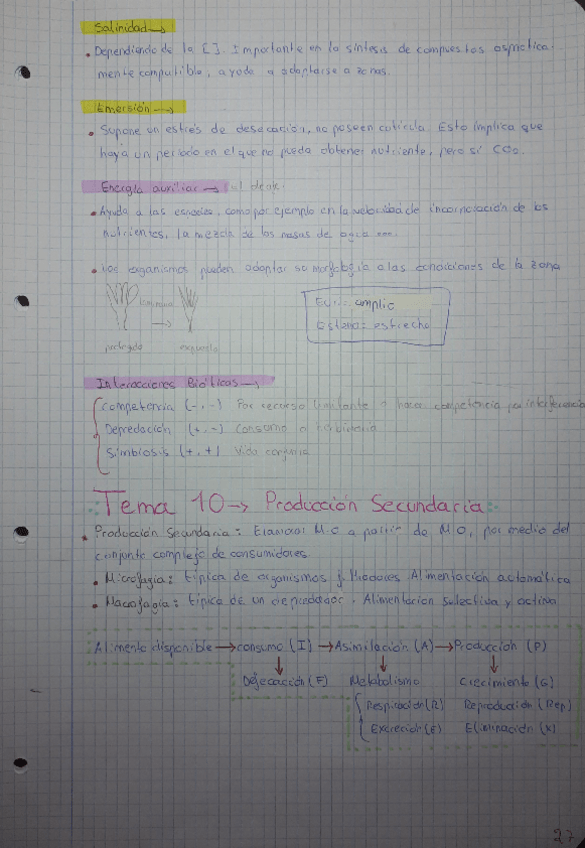 Salinidad →
• Dependiendo de la [ ]. Importante en la síntesis de compuestos osmótica-
mente compatible, ayuda a adaptarse a zonas.
Emersión →
• Supone un estrés de desecación, no poseen cutícula. Esto implica que
haya un periodo en el que no pueda obtener nutriente, pero sí CO2.
Energía auxiliar →
• Ayuda a las especies, como por ejemplo en la velocidad de incorporación de los
nutrientes, la mezcla de las masas de agua ...
• Los organismos pueden adaptar su morfología a las condiciones de la zona
→
protegido expuesto
Euri: amplio
Esteno: estrecho
Interacciones Bióticas →
Competencia (-,-) Por recurso limitante o hacer competencia por interferencia
Depredación (+,-) Consumo o herbivoría
Simbiosis (+,+) Vida conjunta
Tema 10 → Producción Secundaria:
• Producción Secundaria: Elaborar M.O a partir de M.O, por medio del
conjunto complejo de consumidores
• Microfagia: típica de organismos filtradores. Alimentación automática
• Macrofagia: típica de un depredador. Alimentación selectiva y activa
Alimento disponible → consumo (I) → Asimilación (A) → Producción (P)
↓ ↓ ↓
Defecación (F) Metabolismo Crecimiento (G)
Respiración (R) Reproducción (Rep)
Excreción (E) Eliminación (X)
27